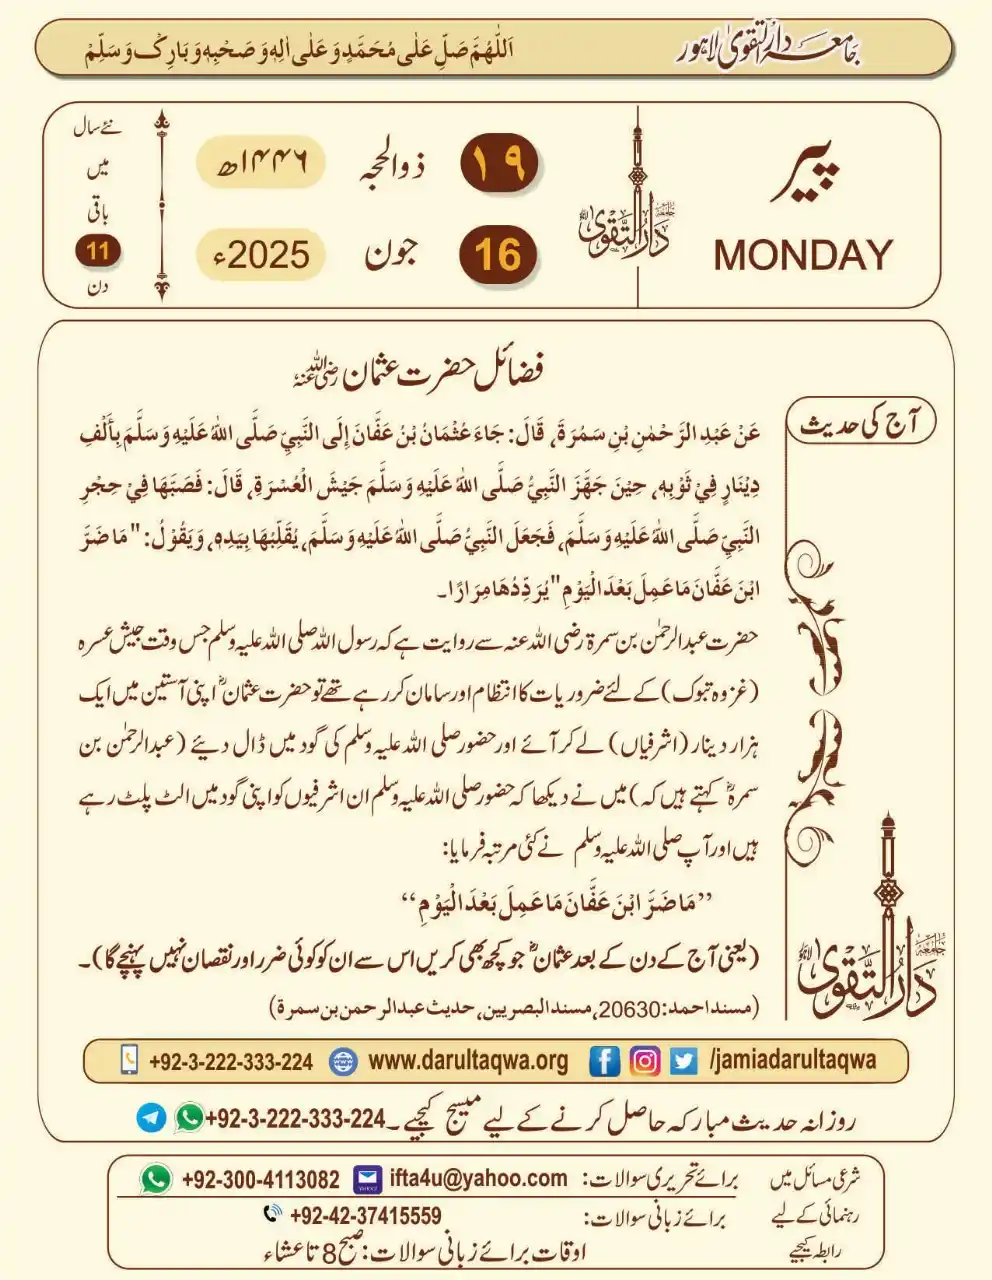 جامعہ دارالتقویٰ لاہور
اَللّٰهُمَّ صَلِّ عَلٰى مُحَمَّدٍ وَّعَلٰى اٰلِهٖ وَصَحْبِهٖ وَبَارِكْ وَسَلِّمْ
پیر
MONDAY
جامعہ دارالتقویٰ لاہور
۱۹ ذوالحجہ ۱۴۴۶ھ
16 جون 2025ء
نئے سال
میں
باقی
11
دن
فضائل حضرت عثمان رضی اللہ عنہ
آج کی حدیث
عَنْ عَبْدِ الرَّحْمٰنِ بْنِ سَمُرَةَ، قَالَ: جَاءَ عُثْمَانُ بْنُ عَفَّانَ إِلَى النَّبِيِّ صَلَّى اللهُ عَلَيْهِ وَسَلَّمَ بِأَلْفِ
دِيْنَارٍ فِيْ ثَوْبِهٖ، حِيْنَ جَهَّزَ النَّبِيُّ صَلَّى اللهُ عَلَيْهِ وَسَلَّمَ جَيْشَ الْعُسْرَةِ، قَالَ: فَصَبَّهَا فِيْ حِجْرِ
النَّبِيِّ صَلَّى اللهُ عَلَيْهِ وَسَلَّمَ، فَجَعَلَ النَّبِيُّ صَلَّى اللهُ عَلَيْهِ وَسَلَّمَ، يُقَلِّبُهَا بِيَدِهٖ، وَيَقُوْلُ: "مَا ضَرَّ
ابْنَ عَفَّانَ مَا عَمِلَ بَعْدَ الْيَوْمِ" يُرَدِّدُهَا مِرَارًا۔
حضرت عبدالرحمٰن بن سمرۃ رضی اللہ عنہ سے روایت ہے کہ رسول اللہ صلی اللہ علیہ وسلم جس وقت جیش عسرہ
(غزوہ تبوک) کے لئے ضروریات کا انتظام اور سامان کر رہے تھے تو حضرت عثمانؓ اپنی آستین میں ایک
ہزار دینار (اشرفیاں) لے کر آئے اور حضور صلی اللہ علیہ وسلم کی گود میں ڈال دیئے (عبدالرحمٰن بن
سمرہؓ کہتے ہیں کہ) میں نے دیکھا کہ حضور صلی اللہ علیہ وسلم ان اشرفیوں کو اپنی گود میں الٹ پلٹ رہے
ہیں اور آپ صلی اللہ علیہ وسلم نے کئی مرتبہ فرمایا:
”مَا ضَرَّ ابْنَ عَفَّانَ مَا عَمِلَ بَعْدَ الْيَوْمِ“
(یعنی آج کے دن کے بعد عثمانؓ جو کچھ بھی کریں اس سے ان کو کوئی ضرر اور نقصان نہیں پہنچے گا)۔
(مسند احمد: 20630، مسند البصريين، حديث عبد الرحمن بن سمرة)
جامعہ دارالتقویٰ لاہور
+92-3-222-333-224 www.darultaqwa.org /jamiadarultaqwa
روزانہ حدیث مبارکہ حاصل کرنے کے لیے میسج کیجیے۔ +92-3-222-333-224
شرعی مسائل میں
رہنمائی کے لیے
رابطہ کیجیے
برائے تحریری سوالات: ifta4u@yahoo.com +92-300-4113082
برائے زبانی سوالات: +92-42-37415559
اوقات برائے زبانی سوالات: صبح 8 تا عشاء